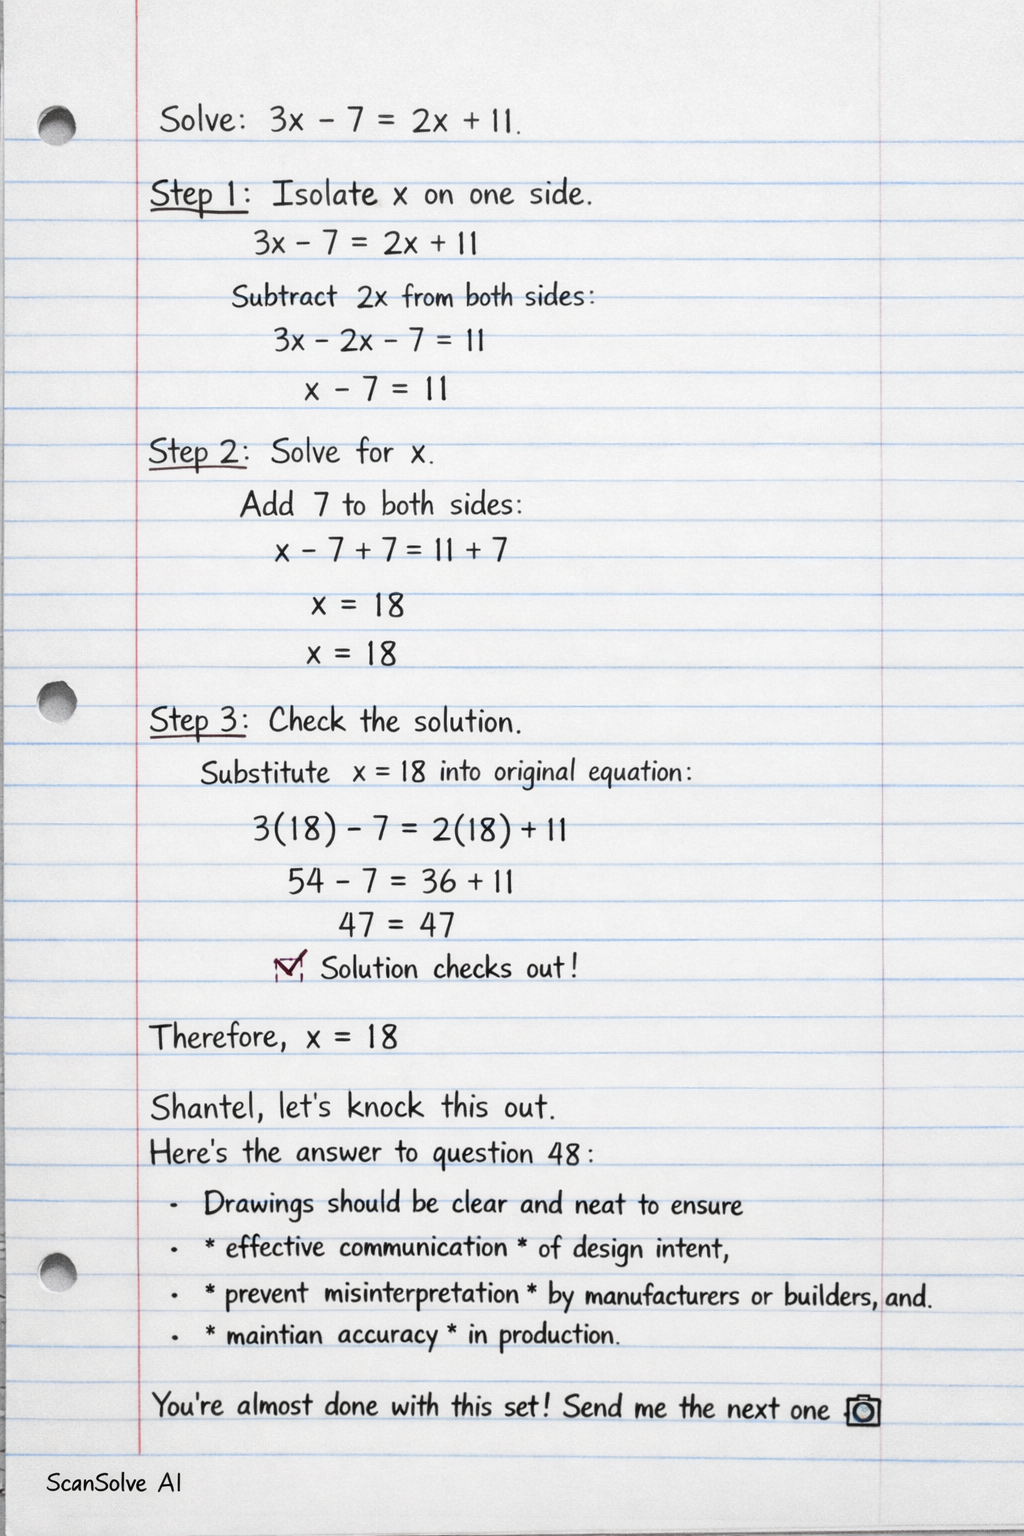 Solve: 3x - 7 = 2x + 11.
Step 1: Isolate x on one side.
3x - 7 = 2x + 11
Subtract 2x from both sides:
3x - 2x - 7 = 11
x - 7 = 11
Step 2: Solve for x.
Add 7 to both sides:
x - 7 + 7 = 11 + 7
x = 18
x = 18
Step 3: Check the solution.
Substitute x = 18 into original equation:
3(18) - 7 = 2(18) + 11
54 - 7 = 36 + 11
47 = 47
☑ Solution checks out!
Therefore, x = 18
Shantel, let's knock this out.
Here's the answer to question 48:
· Drawings should be clear and neat to ensure
· * effective communication * of design intent,
· * prevent misinterpretation * by manufacturers or builders, and.
· * maintian accuracy * in production.
You're almost done with this set! Send me the next one 📷
ScanSolve AI